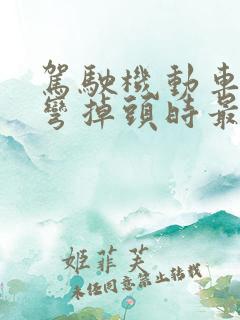 駕駛機動車
彎掉頭時最
姬菲芙
未任同意禁止轉載